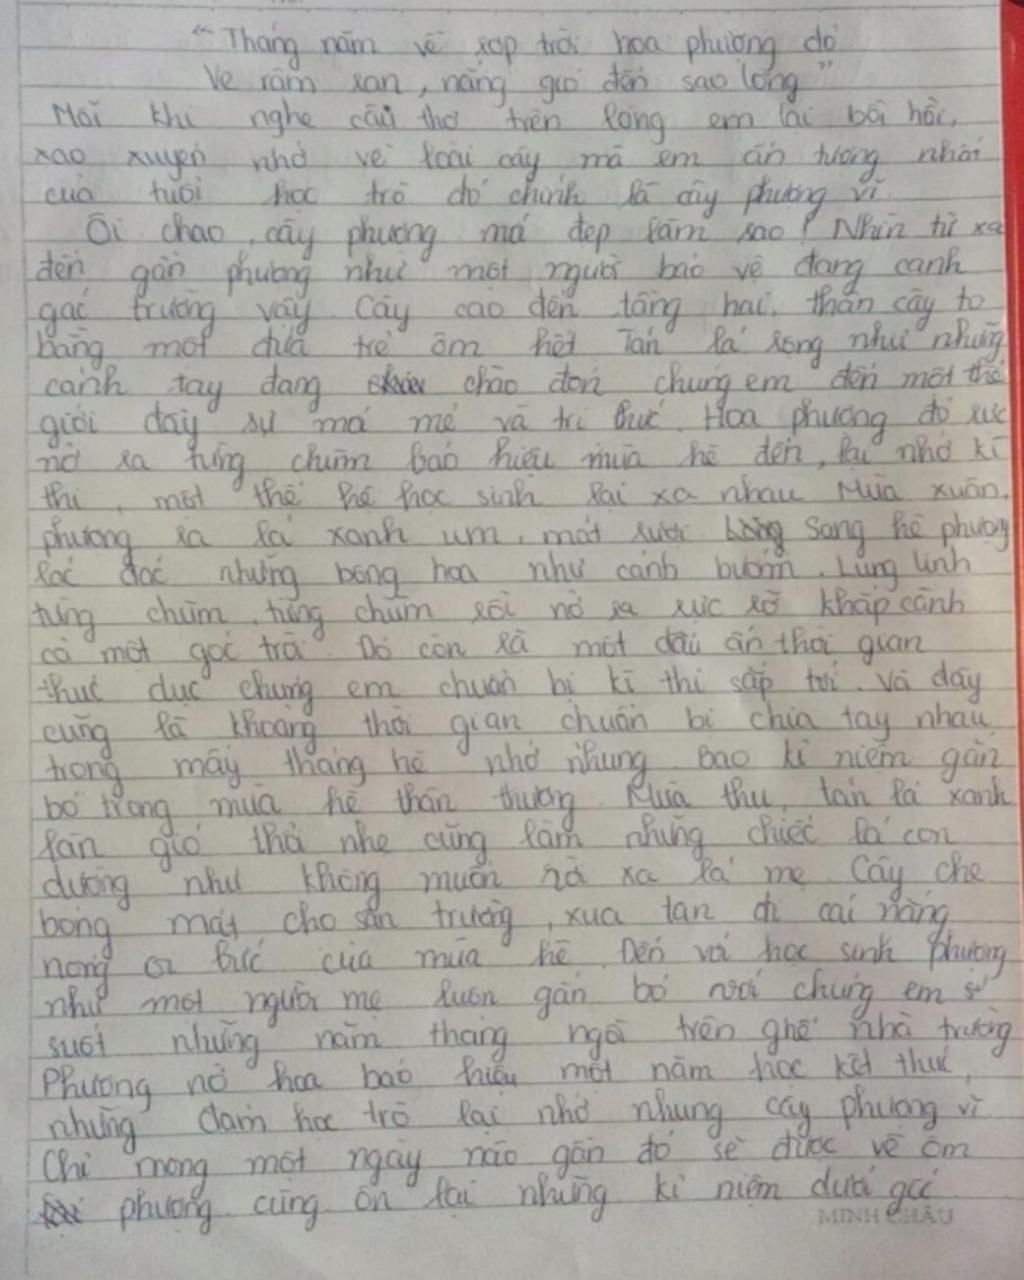 "Tháng năm về rợp trời hoa phượng đỏ
Ve râm ran, nắng gió đến sao lòng"
Mỗi khi nghe câu thơ trên lòng em lại bồi hồi,
xao xuyến nhớ về loài cây mà em ấn tượng nhất
của tuổi học trò đó chính là cây phượng vĩ
Ôi chao, cây phượng mới đẹp làm sao! Nhìn từ xa
đến gần phượng như một người bảo vệ đang canh
gác trường vậy Cây cao đến tầng hai, thân cây to
bằng một đứa trẻ ôm hết Tán lá rộng như những
cánh tay đang chào đón chúng em đến một thế
giới đầy sự mới mẻ và tri thức Hoa phượng đỏ rực
nở ra từng chùm báo hiệu mùa hè đến, lại nhớ kì
thi, một thế hệ học sinh lại xa nhau Mùa xuân,
phượng ra lá xanh um, mát rượi Sang hè phượng
lác đác những bông hoa như cánh bướm. Lung linh
từng chùm, từng chùm rồi nở ra rực rỡ khắp cành
cả một góc trời. Đó còn là một dấu ấn thời gian
thúc dục chúng em chuẩn bị kì thi sắp tới. Và đây
cũng là khoảng thời gian chuẩn bị chia tay nhau
trong mấy tháng hè nhớ nhung bao kỉ niệm gắn
bó trong mùa hè thân thương. Mùa thu, tán lá xanh
làn gió thả nhẹ cũng làm những chiếc lá con
dường như không muốn rời xa lá mẹ. Cây che
bóng mát cho sân trường, xua tan đi cái nắng
nóng oi bức của mùa hè. Đến với học sinh phượng
như một người mẹ luôn gắn bó với chúng em
suốt những năm tháng ngồi trên ghế nhà trường
Phượng nở hoa báo hiệu một năm học kết thúc,
những đám học trò lại nhớ nhung cây phượng vĩ
Chỉ mong một ngày nào gần đó sẽ được về ôm
phượng cùng ôn lại những kỉ niệm dưới gốc
MINH CHÂU